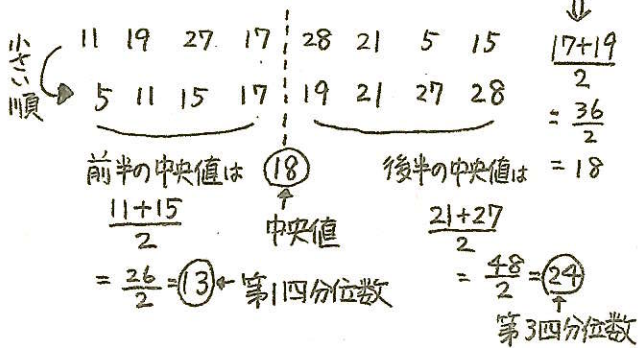 小さい順
11 19 27 17 28 21 5 15
5 11 15 17 19 21 27 28
⇓
17+19
2
= 36
2
= 18
前半の中央値は 18
中央値
11+15
2
= 26/2 = 13 ← 第1四分位数
後半の中央値は
21+27
2
= 48/2 = 24
第3四分位数